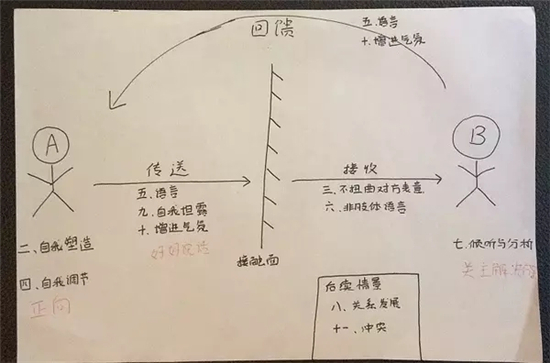 回馈
五.语言
十.增进气氛
A
B
传送
五.语言
九.自我坦露
十.增进气氛
好好说话
接触面
接收
三.不扭曲对方表意
六.非肢体语言
二.自我塑造
四.自我调节
正向
七.倾听与分析
后续情景
八.关系发展
十一.冲突